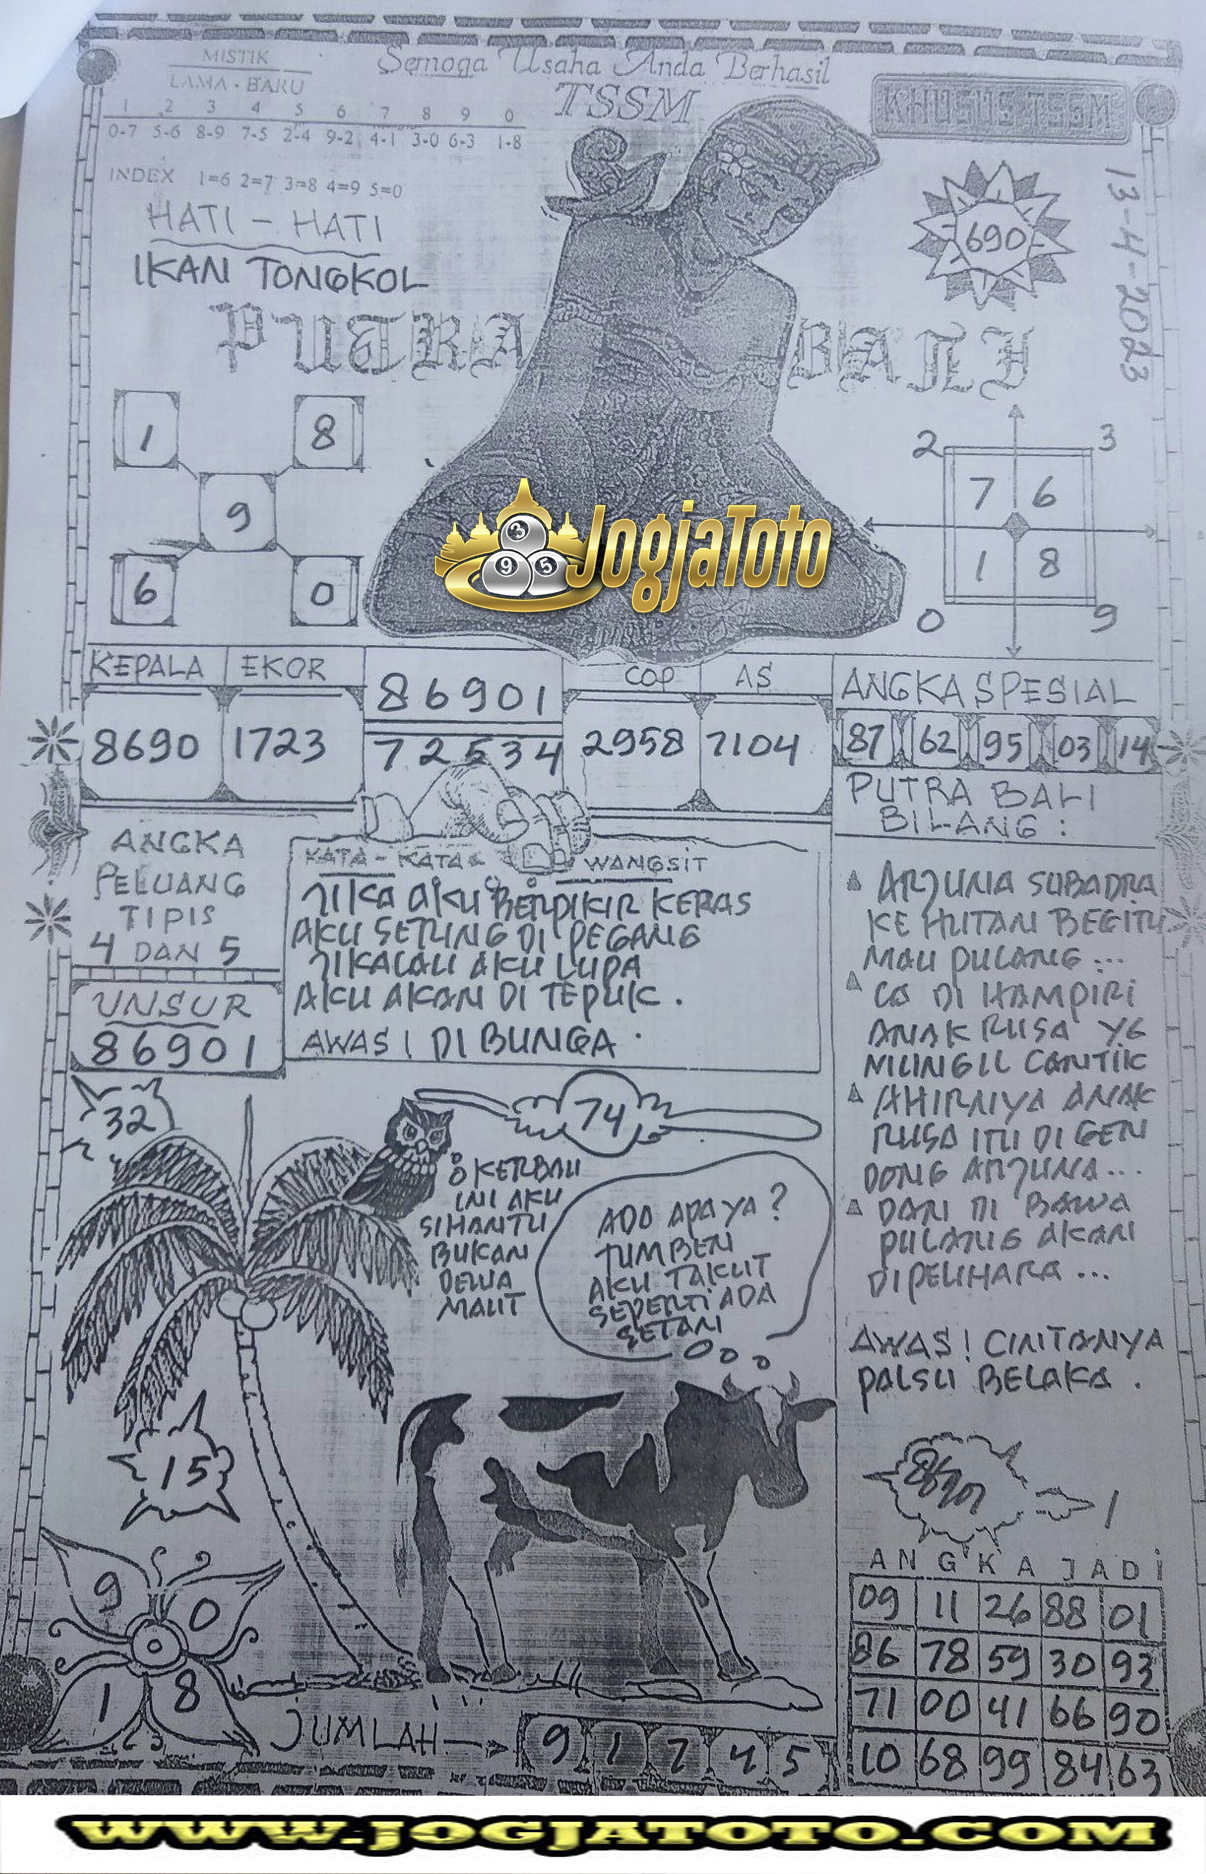 MISTIK
LAMA - BARU
1 2 3 4 5 6 7 8 9 0
0-7 5-6 8-9 7-5 2-4 9-2 4-1 3-0 6-3 1-8
INDEX 1=6 2=7 3=8 4=9 5=0
Semoga Usaha Anda Berhasil
TSSM
KHUSUS TSSM
13-4-2023
690
HATI - HATI
IKAN TONGKOL
PUTRA BALI
1 8
9
6 0
2 3
7 6
1 8
0 9
3
9 5
JogjaToto
KEPALA EKOR
8690 1723
86901
72534
COP AS
2958 7104
ANGKA SPESIAL
87 62 95 03 14
PUTRA BALI
BILANG :
ANGKA
PELUANG
TIPIS
4 DAN 5
UNSUR
86901
KATA - KATA & WANGSIT
JIKA AKU BERPIKIR KERAS
AKU SETUNG DI PEGANG
JIKALAU AKU LUPA
AKU AKAN DI TEPUK.
AWAS! DI BUNGA.
ARJUNA SUBADRA
KE HUTAN BEGITU
MAU PULANG ...
DI HAMPIRI
ANAK RUSA YG
MUNGIL CANTIK
AHIRNYA ANAK
RUSA ITU DI GEN
DONG ARJUNA...
DAN DI BAWA
PULANG AKAN
DIPELIHARA ...
AWAS! CINTANYA
PALSU BELAKA.
32
74
O KERBAU
INI AKU
SIHANTU
BUKAN
DEWA
MAUT
ADA APA YA?
TUMBEN
AKU TAKUT
SEPERTI ADA
SETAN
15
9 0
1 8
JUMLAH
9 1 7 4 5
86901
1
ANGKA JADI
09 11 26 88 01
86 78 59 30 93
71 00 41 66 90
10 68 99 84 63
WWW.JOGJATOTO.COM